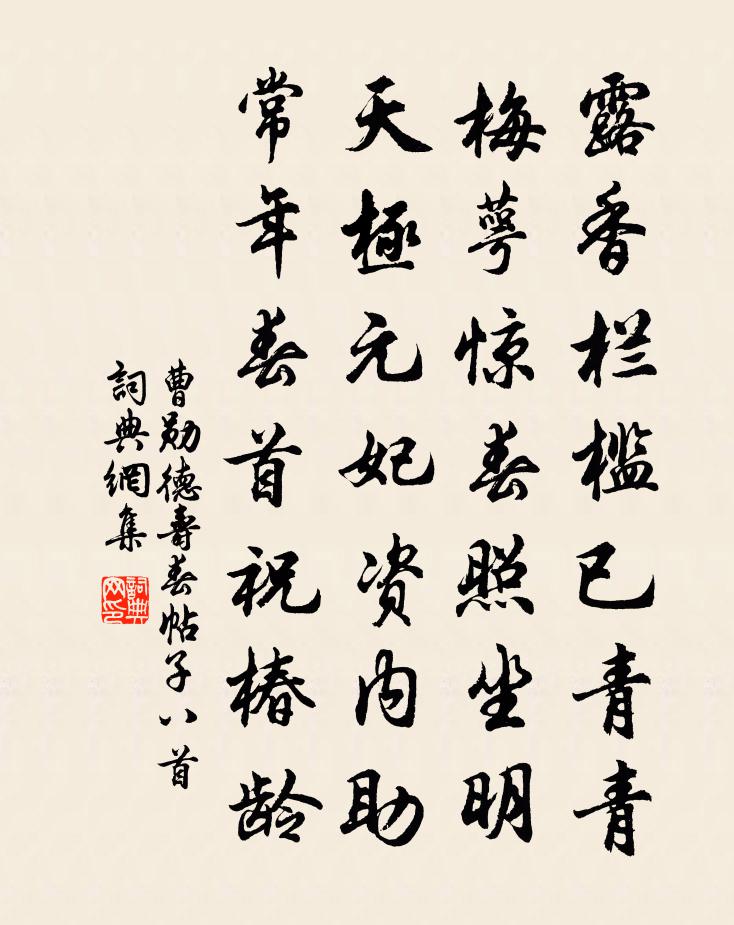 露香栏槛已青青
梅萼惊春照坐明
天極元妃资内助
常年春首祝椿龄
曹勛德壽春帖子八首
詞典網集
詞典
网印